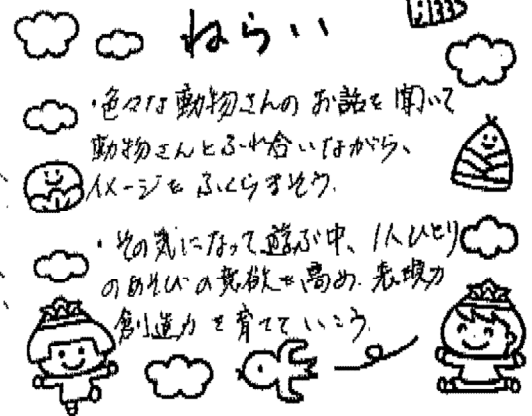 ねらい
・色々な動物さんの お話を聞いて
動物さんとふれ合いながら、
イメージを ふくらまそう.
・その気になって遊ぶ中、1人ひとり
のあそびの意欲を高め. 表現力
創造力を育てていこう.